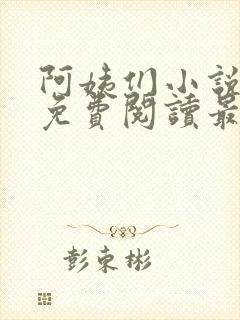 阿姨们小說
免費閱讀最
彭東彬